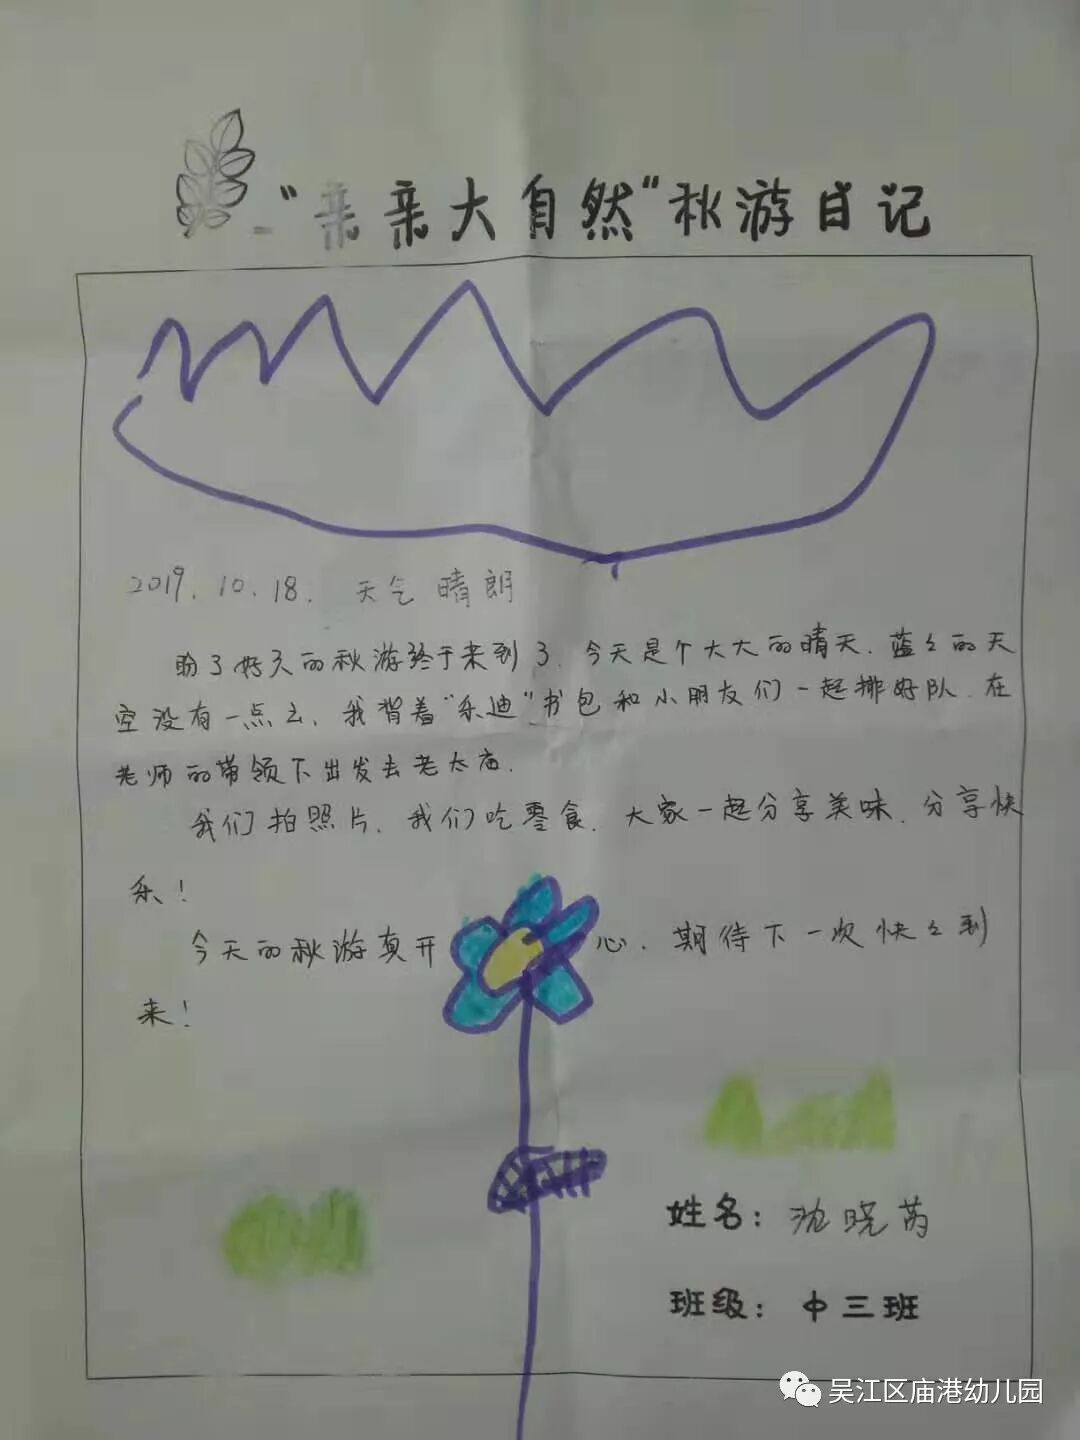 “亲亲大自然”秋游日记
2019.10.18. 天气晴朗
盼了好久的秋游终于来到了.今天是个大大的晴天.蓝々的天
空没有一点云.我背着“乐迪”书包和小朋友们一起排好队.在
老师的带领下出发去老太庙.
我们拍照片.我们吃零食.大家一起分享美味.分享快
乐!
今天的秋游真开心.期待下一次快々到
来!
姓名:沈晓芮
班级:中三班
吴江区庙港幼儿园